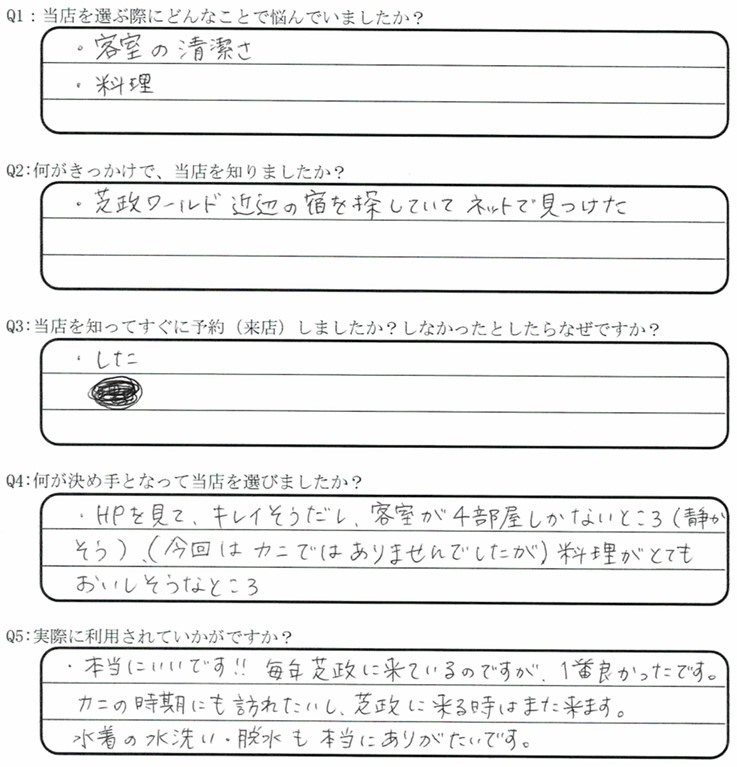 Q1：当店を選ぶ際にどんなことで悩んでいましたか？
・客室の清潔さ
・料理
Q2:何がきっかけで、当店を知りましたか？
・芝政ワールド近辺の宿を探していてネットで見つけた
Q3:当店を知ってすぐに予約（来店）しましたか？しなかったとしたらなぜですか？
・した
Q4:何が決め手となって当店を選びましたか？
・HPを見て、キレイそうだし、客室が4部屋しかないところ(静か
そう)、(今回はカニではありませんでしたが)料理がとても
おいしそうなところ
Q5:実際に利用されていかがですか？
・本当にいいです!! 毎年芝政に来ているのですが、1番良かったです。
カニの時期にも訪れたいし、芝政に来る時はまた来ます。
水着の水洗い・脱水も本当にありがたいです。